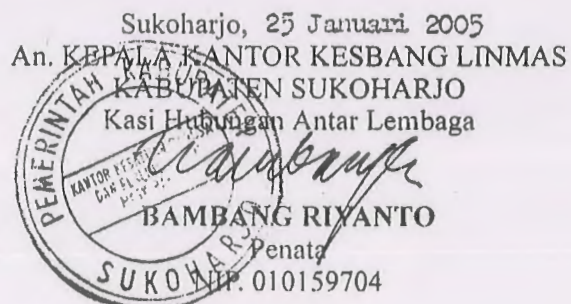 Sukoharjo, 25 Januari 2005
An. KEPALA KANTOR KESBANG LINMAS
KABUPATEN SUKOHARJO
Kasi Hubungan Antar Lembaga
BAMBANG RIYANTO
Penata
NIP. 010159704
PEMERINTAH KABUPATEN
KANTOR
SUKOHARJO